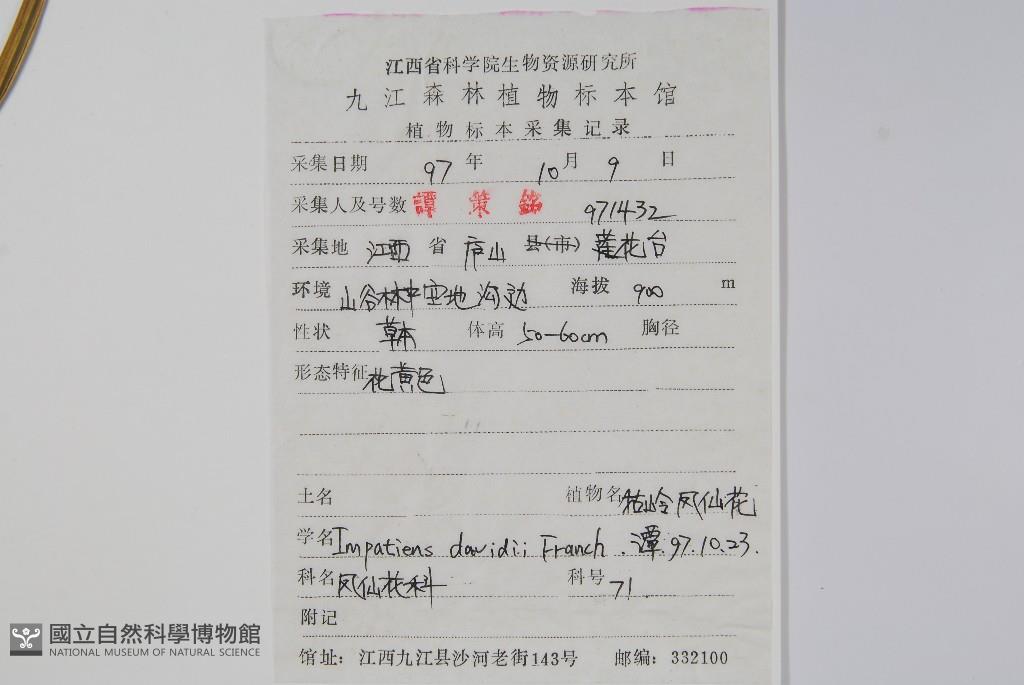 江西省科学院生物资源研究所
九江森林植物标本馆
植物标本采集记录
采集日期 97 年 10 月 9 日
采集人及号数 譚策銘 971432
采集地 江西 省 庐山 县(市) 莲花台
环境 山谷林中空地沟边 海拔 900 m
性状 草本 体高 50-60cm 胸径
形态特征 花黄色
土名 植物名 牯岭凤仙花
学名 Impatiens davidii Franch. 谭.97.10.23.
科名 凤仙花科 科号 71.
附记
馆址：江西九江县沙河老街143号 邮编：332100
國立自然科學博物館
NATIONAL MUSEUM OF NATURAL SCIENCE